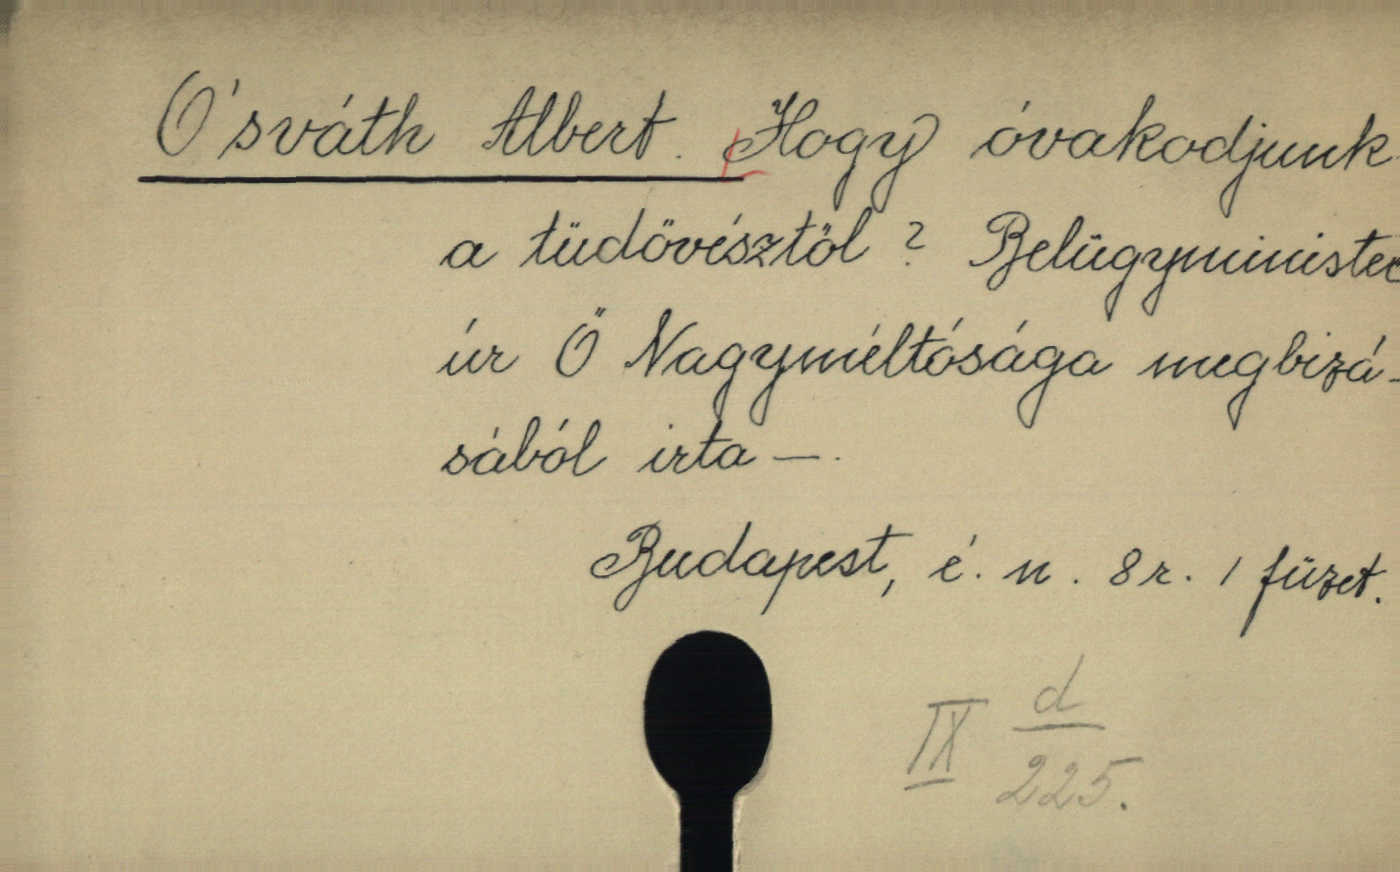 Ósváth Albert. Hogy óvakodjunk
a tüdövésztöl? Belügyminister
úr Ő Nagyméltósága megbizá-
sából irta —.
Budapest, é. n. 8r. 1 füzet.
IX d
225.